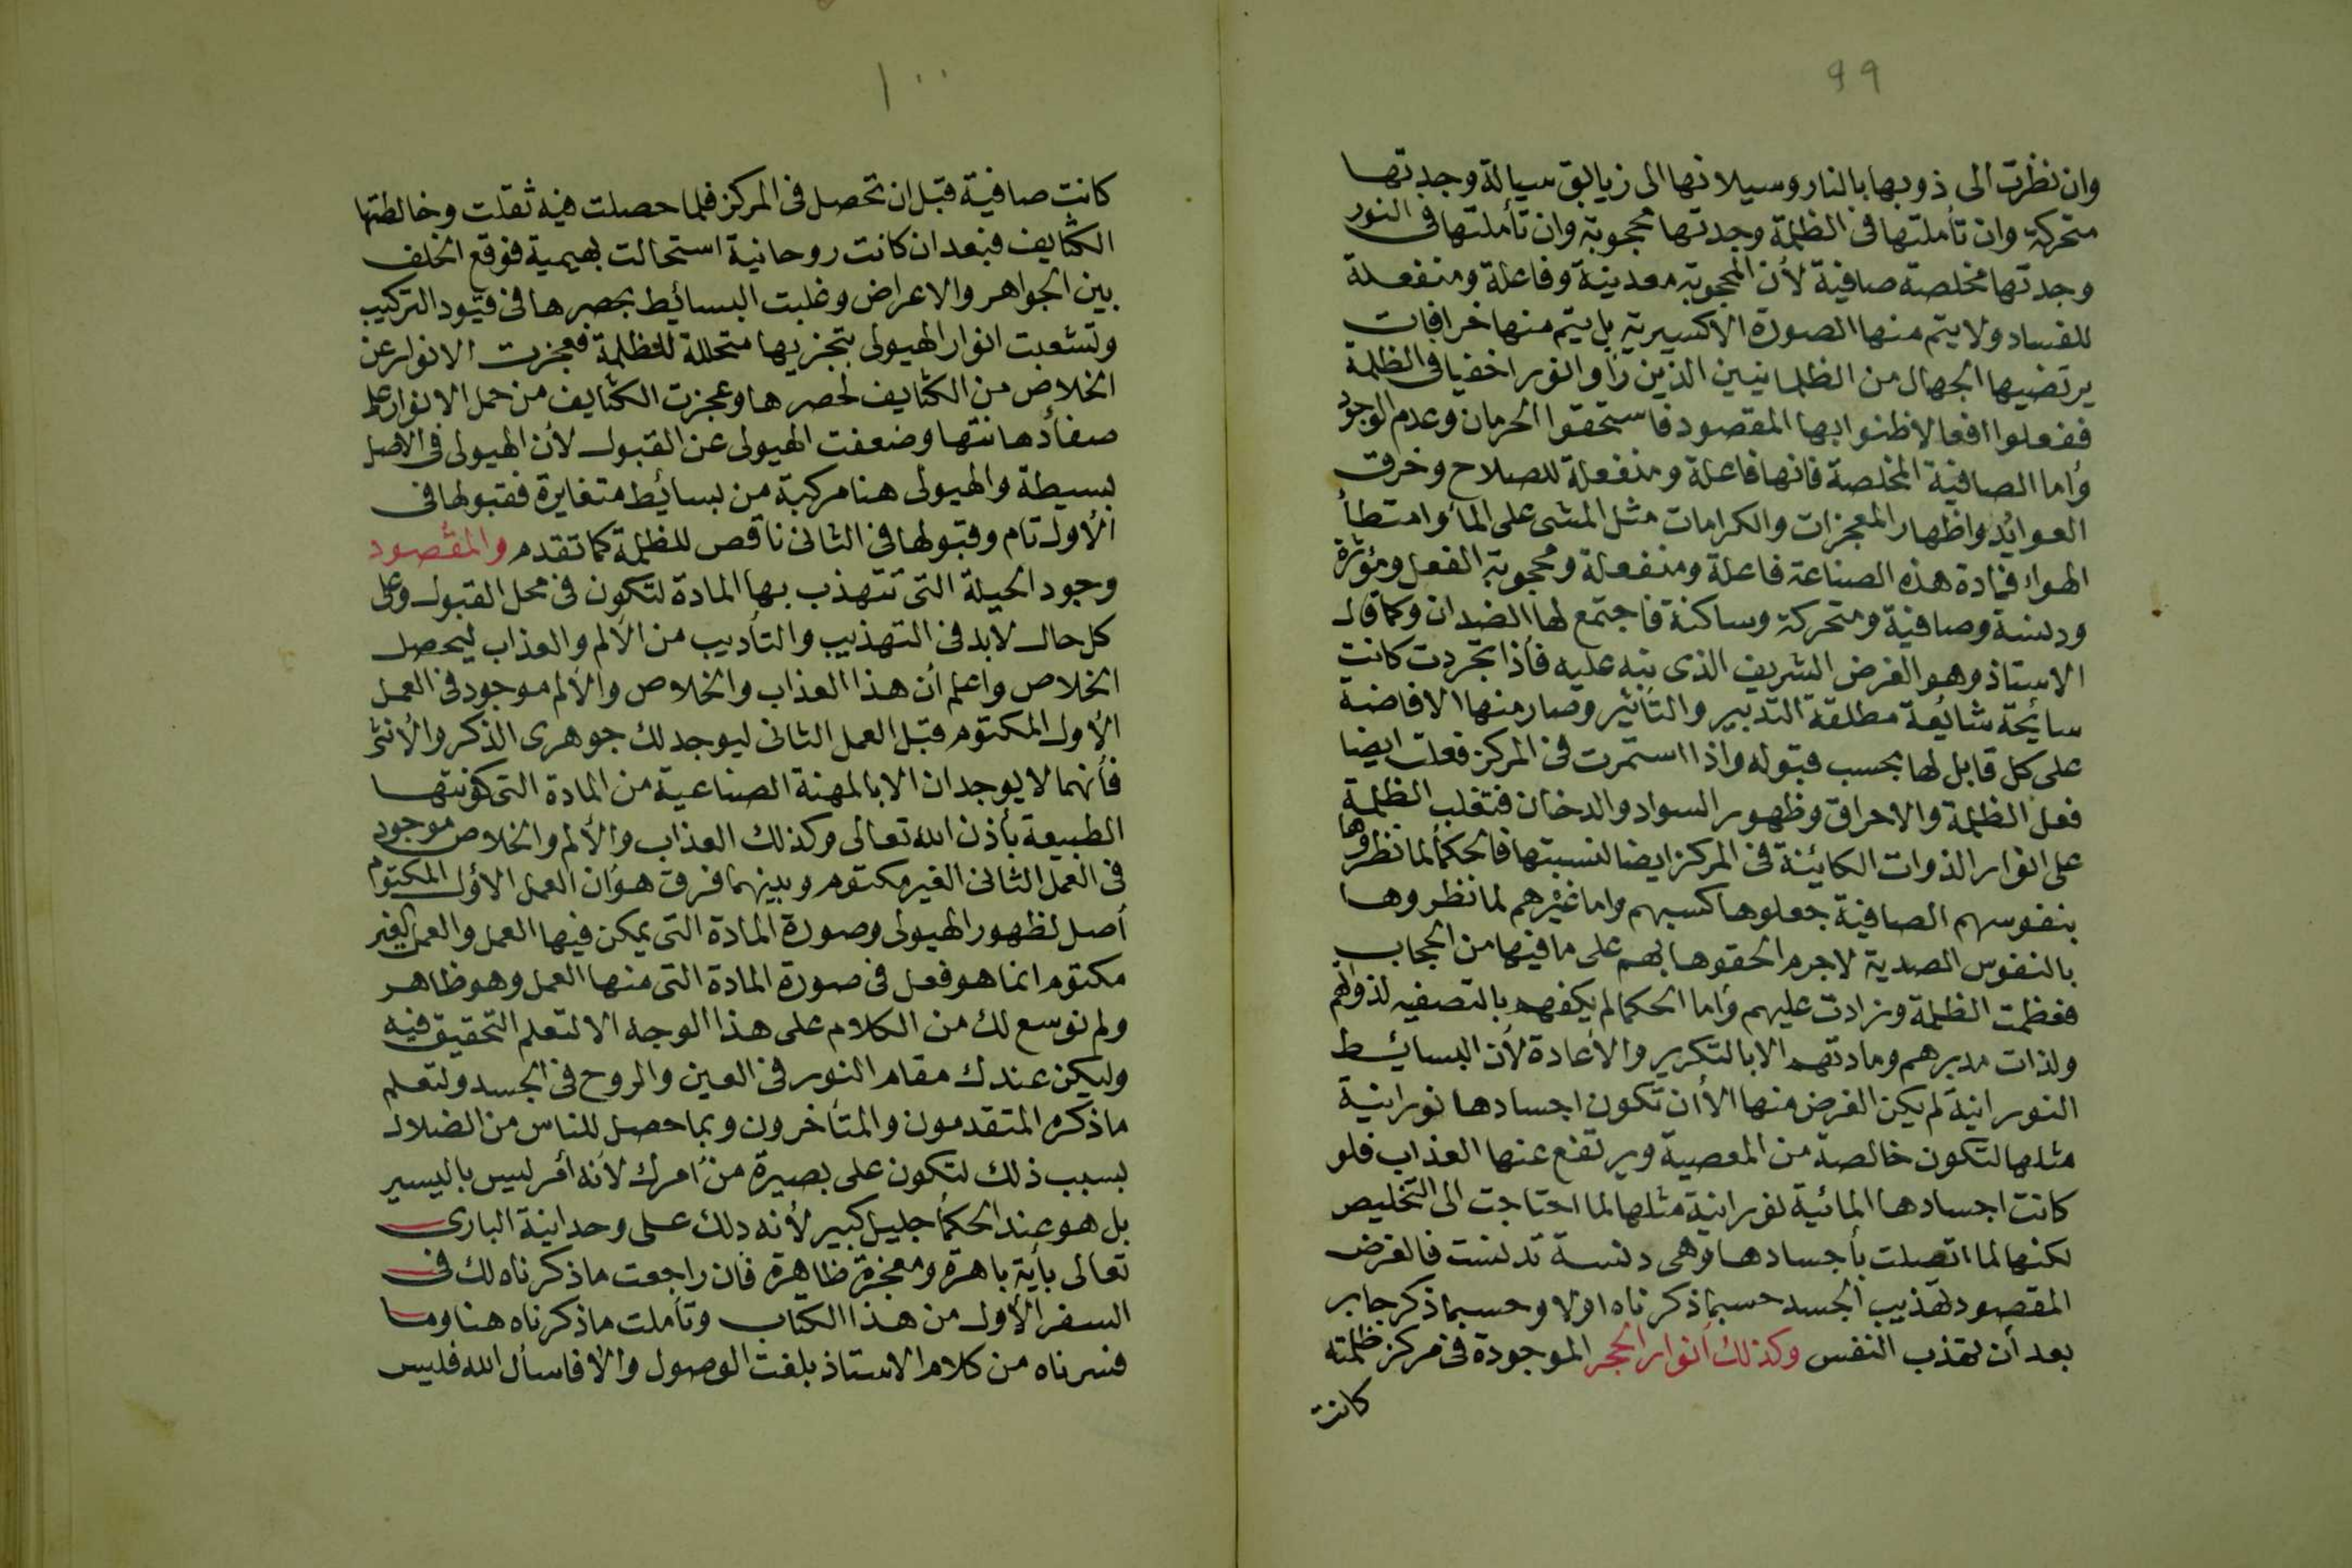 ٩٩
وان نظرت الى ذوبها بالنار وسيلانها الى زيابق سيالة وجدتها
متحركة وان تأملتها فى الظلمة وجدتها محجوبة وان تأملتها فى النور
وجدتها مخلصة صافية لأن المحجوبة معدينة وفاعلة ومنفعلة
للفساد ولا يتم منها الصورة الاكسيرية بل يتم منها خرافات
يرتضيها الجهال من الظلمانيين الذين رأوا نورا خفيا فى الظلمة
ففعلوا افعالا ظنوا بها المقصود فاستحقوا الحرمان وعدم الوجود
وأما الصافية المخلصة فانها فاعلة ومنفعلة للصلاح وخرق
العوائد واظهار المعجزات والكرامات مثل المشى على الماء وامتطأ
الهواء فمادة هذه الصناعة فاعلة ومنفعلة ومحجوبة الفعل ومؤثرة
ودنسة وصافية ومتحركة وساكنة فاجتمع لها الضدان وكما قال
الاستاذ وهو الغرض الشريف الذى نبه عليه فأذا تجردت كانت
سايحة شائعة مطلقة التدبير والتأثير وصار منها الافاضة
على كل قابل لها بحسب قبوله واذا استمرت فى المركز فعلت ايضا
فعل الظلمة والاحراق وظهور السواد والدخان فتغلب الظلمة
على انوار الذوات الكائنة فى المركز ايضا لنسبتها فالحكمأ لما نظروها
بنفوسهم الصافية جعلوها كسبهم واما غيرهم لما نظروها
بالنفوس الصدية لاجرم الحقوها بهم على ما فيها من الحجاب
فعظمت الظلمة وزادت عليهم وأما الحكما لم يكفهم بالتصفيه لذواتهم
ولذات مدبرهم ومادتهم الا بالتكرير والأعادة لأن البسائط
النورانية لم يكن الغرض منها الأ أن تكون اجسادها نورانية
مثلها لتكون خالصة من المعصية ويرتفع عنها العذاب فلو
كانت اجسادها المائية نورانية مثلها لما احتاجت الى التخليص
لكنها لما اتصلت بأجسادها وهى دنسة تدنست فالغرض
المقصود تهذيب الجسد حسبما ذكرناه اولا وحسبما ذكر جابر
بعد أن تهذب النفس وكذلك أنوار الحجر الموجودة فى مركز ظلمته
كانت
١٠٠
كانت صافية قبل ان تحصل فى المركز فلما حصلت فيه ثقلت وخالطتها
الكثايف فبعد ان كانت روحانية استحالت بهيمية فوقع الخلف
بين الجواهر والاعراض وغلبت البسائط بحصرها فى قيود التركيب
وتشعبت انوار الهيولى بتجزيها متحللة للظلمة فعجزت الانوار عن
الخلاص من الكثايف لحصرها وعجزت الكثايف من حمل الانوار على
صفأدهانتها وضعفت الهيولى عن القبول لأن الهيولى فى الاصل
بسيطة والهيولى هنا مركبة من بسائط متغايرة فقبولها فى
الأول تام وقبولها فى الثانى ناقص للظلمة كما تقدم والمقصود
وجود الحيلة التى تتهذب بها المادة لتكون فى محل القبول وعلى
كل حال لابد فى التهذيب والتأديب من الألم والعذاب ليحصل
الخلاص واعلم أن هذا العذاب والخلاص والألم موجود فى العمل
الأول المكتوم قبل العمل الثانى ليوجد لك جوهرى الذكر والأنثى
فأنهما لا يوجدان الا بالمهنة الصناعية من المادة التى كونتها
الطبيعة بأذن الله تعالى وكذلك العذاب والألم والخلاص موجود
فى العمل الثانى الغير مكتوم وبينهما فرق هو ان العمل الأول المكتوم
أصل لظهور الهيولى وصورة المادة التى يمكن فيها العمل والعمل الغير
مكتوم انما هو فعل فى صورة المادة التى منها العمل وهو ظاهر
ولم نوسع لك من الكلام على هذا الوجه الا لتعلم التحقيق فيه
وليكن عندك مقام النور فى العين والروح فى الجسد ولتعلم
ما ذكره المتقدمون والمتأخرون وبما حصل للناس من الضلال
بسبب ذلك لتكون على بصيرة من أمرك لأنه أمر ليس باليسير
بل هو عند الحكمأ جليل كبير لأنه دلك على وحدانية البارى
تعالى بأية باهرة ومعجزة ظاهرة فان راجعت ما ذكرناه لك فى
السفر الأول من هذا الكتاب وتأملت ما ذكرناه هنا وما
فسرناه من كلام الاستاذ بلغت الوصول والا فاسأل الله فليس